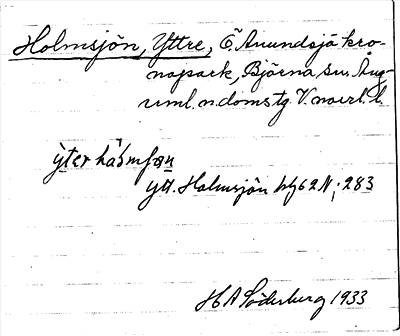 Holmsjön, Yttre, Ö. Anundsjö kro-
nopark, Björna sn. Ång-
erml. n. domstg V. norrl. l.
Ytt. Holmsjön bl 62 N; 283
H A Söderberg 1933